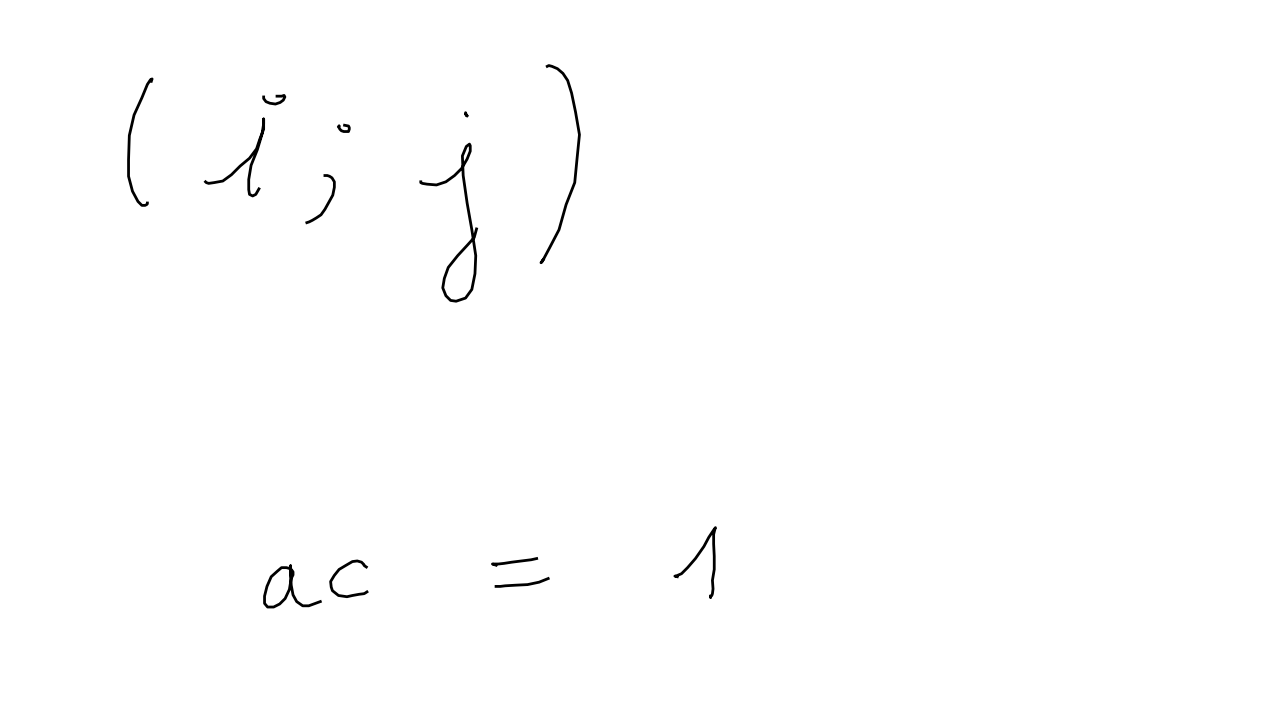 (i; j)
ac = 1